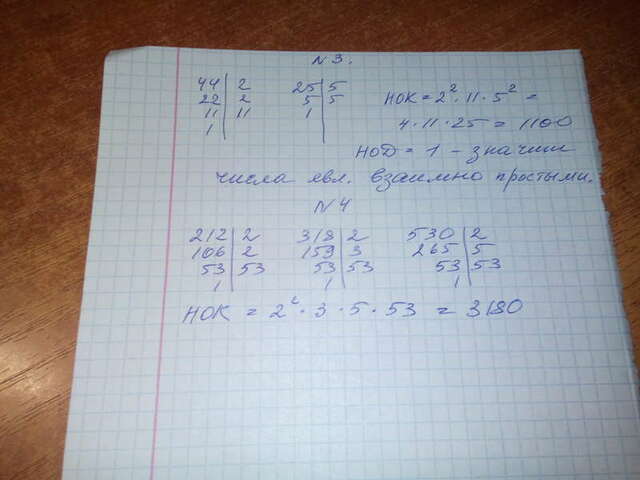 N 3.
44 | 2 25 | 5 НОК = 2² · 11 · 5² =
22 | 2 5 | 5 4 · 11 · 25 = 1100
11 | 11 1 |
1 |
НОД = 1 - значит
числа явл. взаимно простыми.
N 4
212 | 2 318 | 2 530 | 2
106 | 2 159 | 3 265 | 5
53 | 53 53 | 53 53 | 53
1 | 1 | 1 |
НОК = 2² · 3 · 5 · 53 = 3180